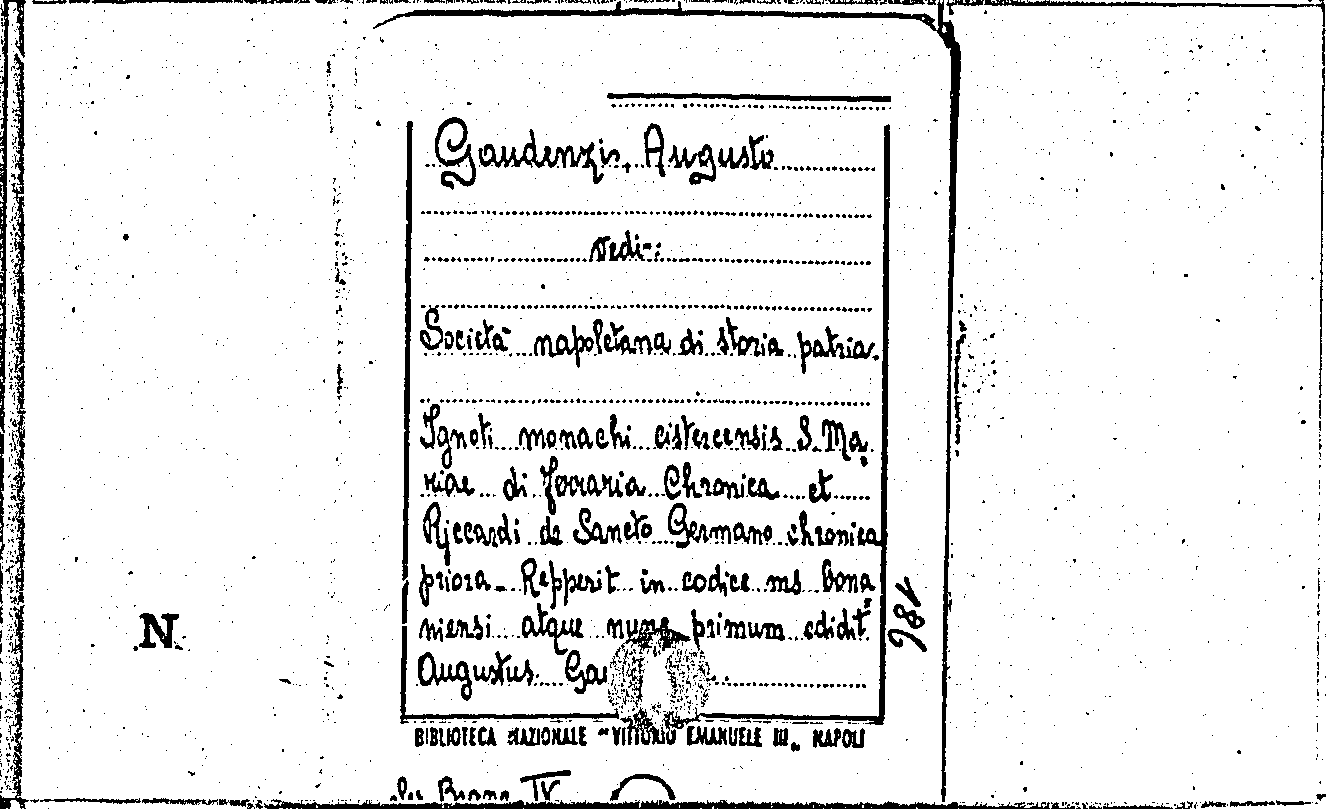 Gaudenzi, Augusto
vedi-:
Società napoletana di storia patria.
Ignoti monachi cistercensis S. Ma-
riae di Ferraria Chronica et
Riccardi de Sancto Germano chronica
priora. Repperit in codice ms bona
niensi atque nunc primum edidit
Augustus
186
N
BIBLIOTECA NAZIONALE "VITTORIO EMANUELE III„ NAPOLI
Bruno IV